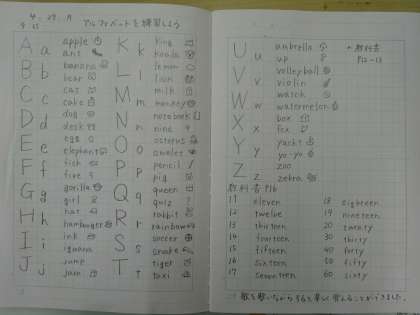 4.27. 月
アルファベットを練習しよう
A a apple
ant
B b banana
bear
C c cat
cake
D d dog
desk
E e egg
elephant
F f fish
five
G g gorilla
girl
H h hat
hamburger
I i ink
iguana
J j jump
jam
K k king
koala
L l lemon
lion
M m milk
monkey
N n notebook
nine
O o octopus
omelet
P p pencil
pig
Q q queen
quiz
R r rabbit
rainbow
S s soccer
snake
T t tiger
taxi
U u umbrella
up
V v volleyball
violin
W w watch
watermelon
X x box
fox
Y y yacht
yo-yo
Z z zoo
zebra
←教科書
P12-13
教科書 P16
11 eleven
12 twelve
13 thirteen
14 fourteen
15 fifteen
16 sixteen
17 seventeen
18 eighteen
19 nineteen
20 twenty
30 thirty
40 forty
50 fifty
60 sixty